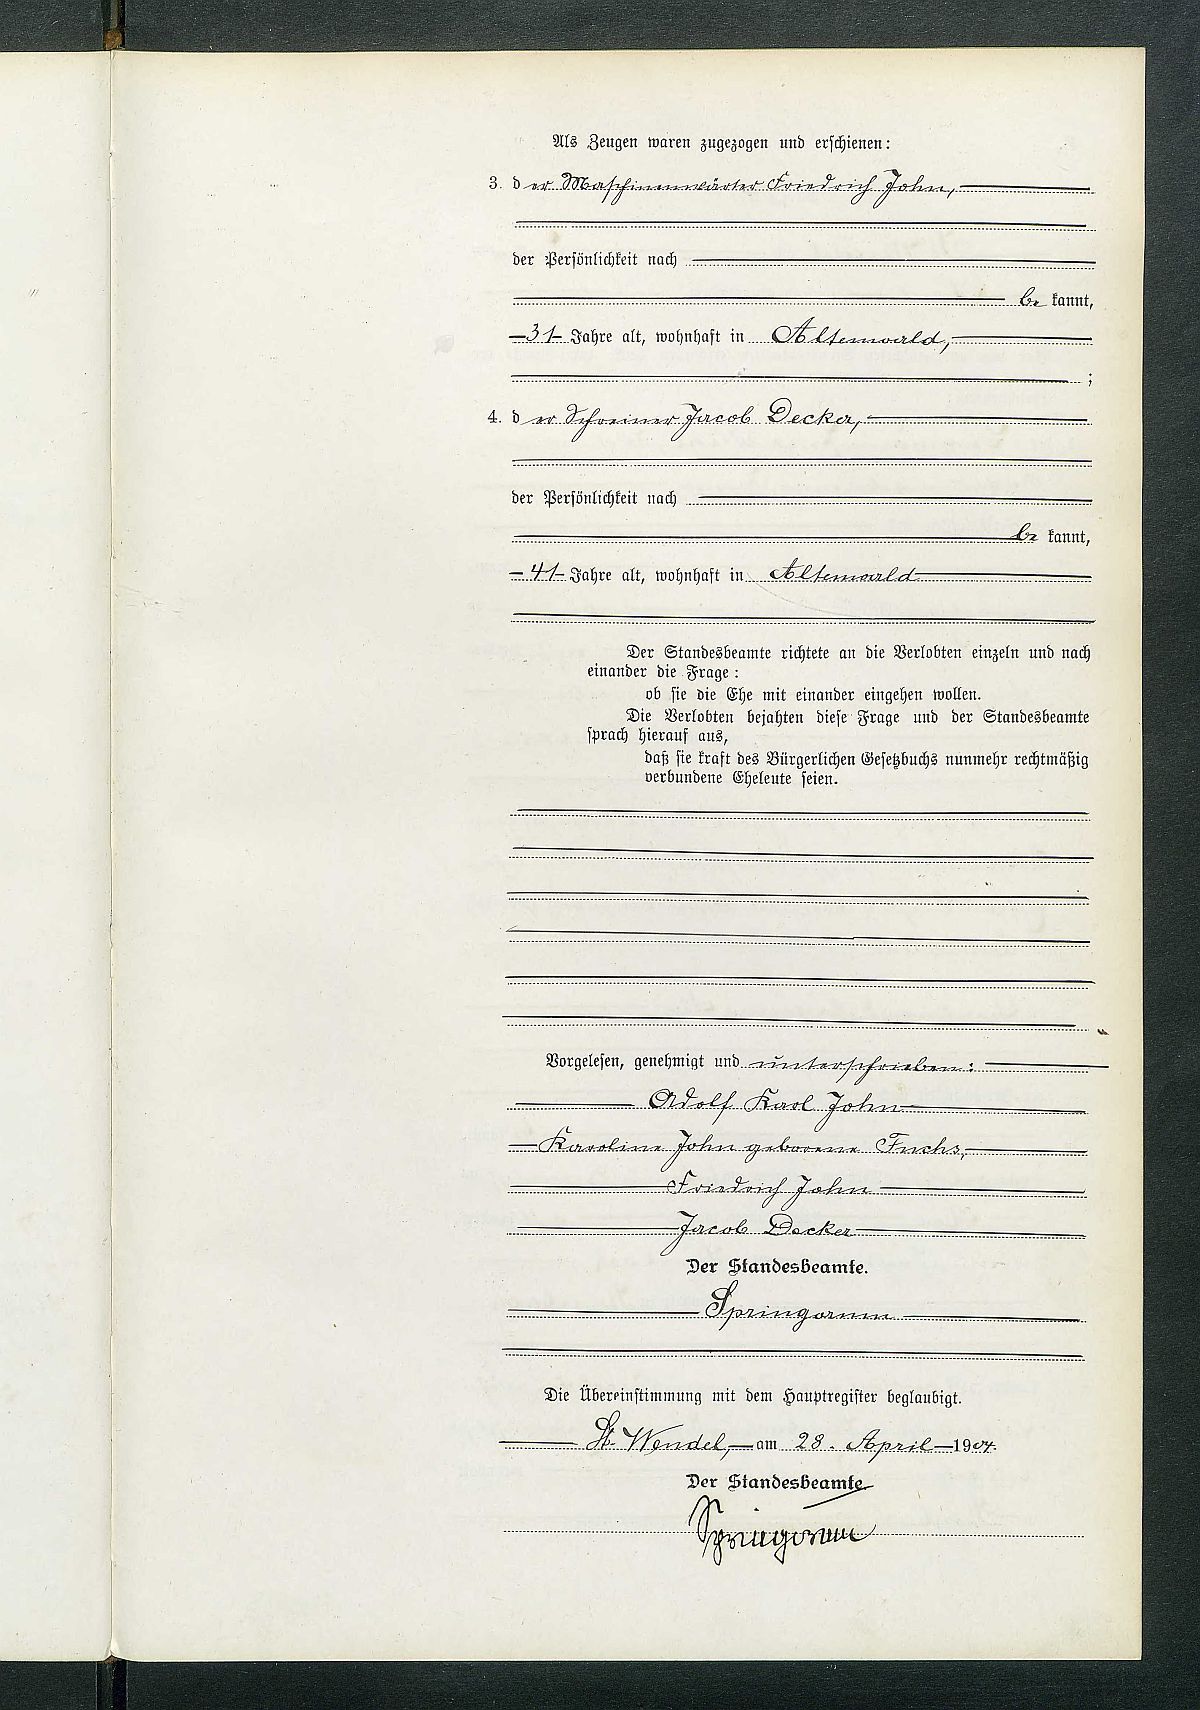 Als Zeugen waren zugezogen und erschienen:
3. der Maschinenwärter Friedrich John,
der Persönlichkeit nach
be kannt,
31 Jahre alt, wohnhaft in Altenwald,
;
4. der Schreiner Jacob Decker,
der Persönlichkeit nach
be kannt,
41 Jahre alt, wohnhaft in Altenwald
Der Standesbeamte richtete an die Verlobten einzeln und nach
einander die Frage:
ob sie die Ehe mit einander eingehen wollen.
Die Verlobten bejahten diese Frage und der Standesbeamte
sprach hierauf aus,
daß sie kraft des Bürgerlichen Gesetzbuchs nunmehr rechtmäßig
verbundene Eheleute seien.
Vorgelesen, genehmigt und unterschrieben:
Adolf Karl John
Karoline John geborene Fuchs,
Friedrich John
Jacob Decker
Der Standesbeamte.
Springorum
Die Übereinstimmung mit dem Hauptregister beglaubigt.
St. Wendel, am 28. April 1904.
Der Standesbeamte
Springorum